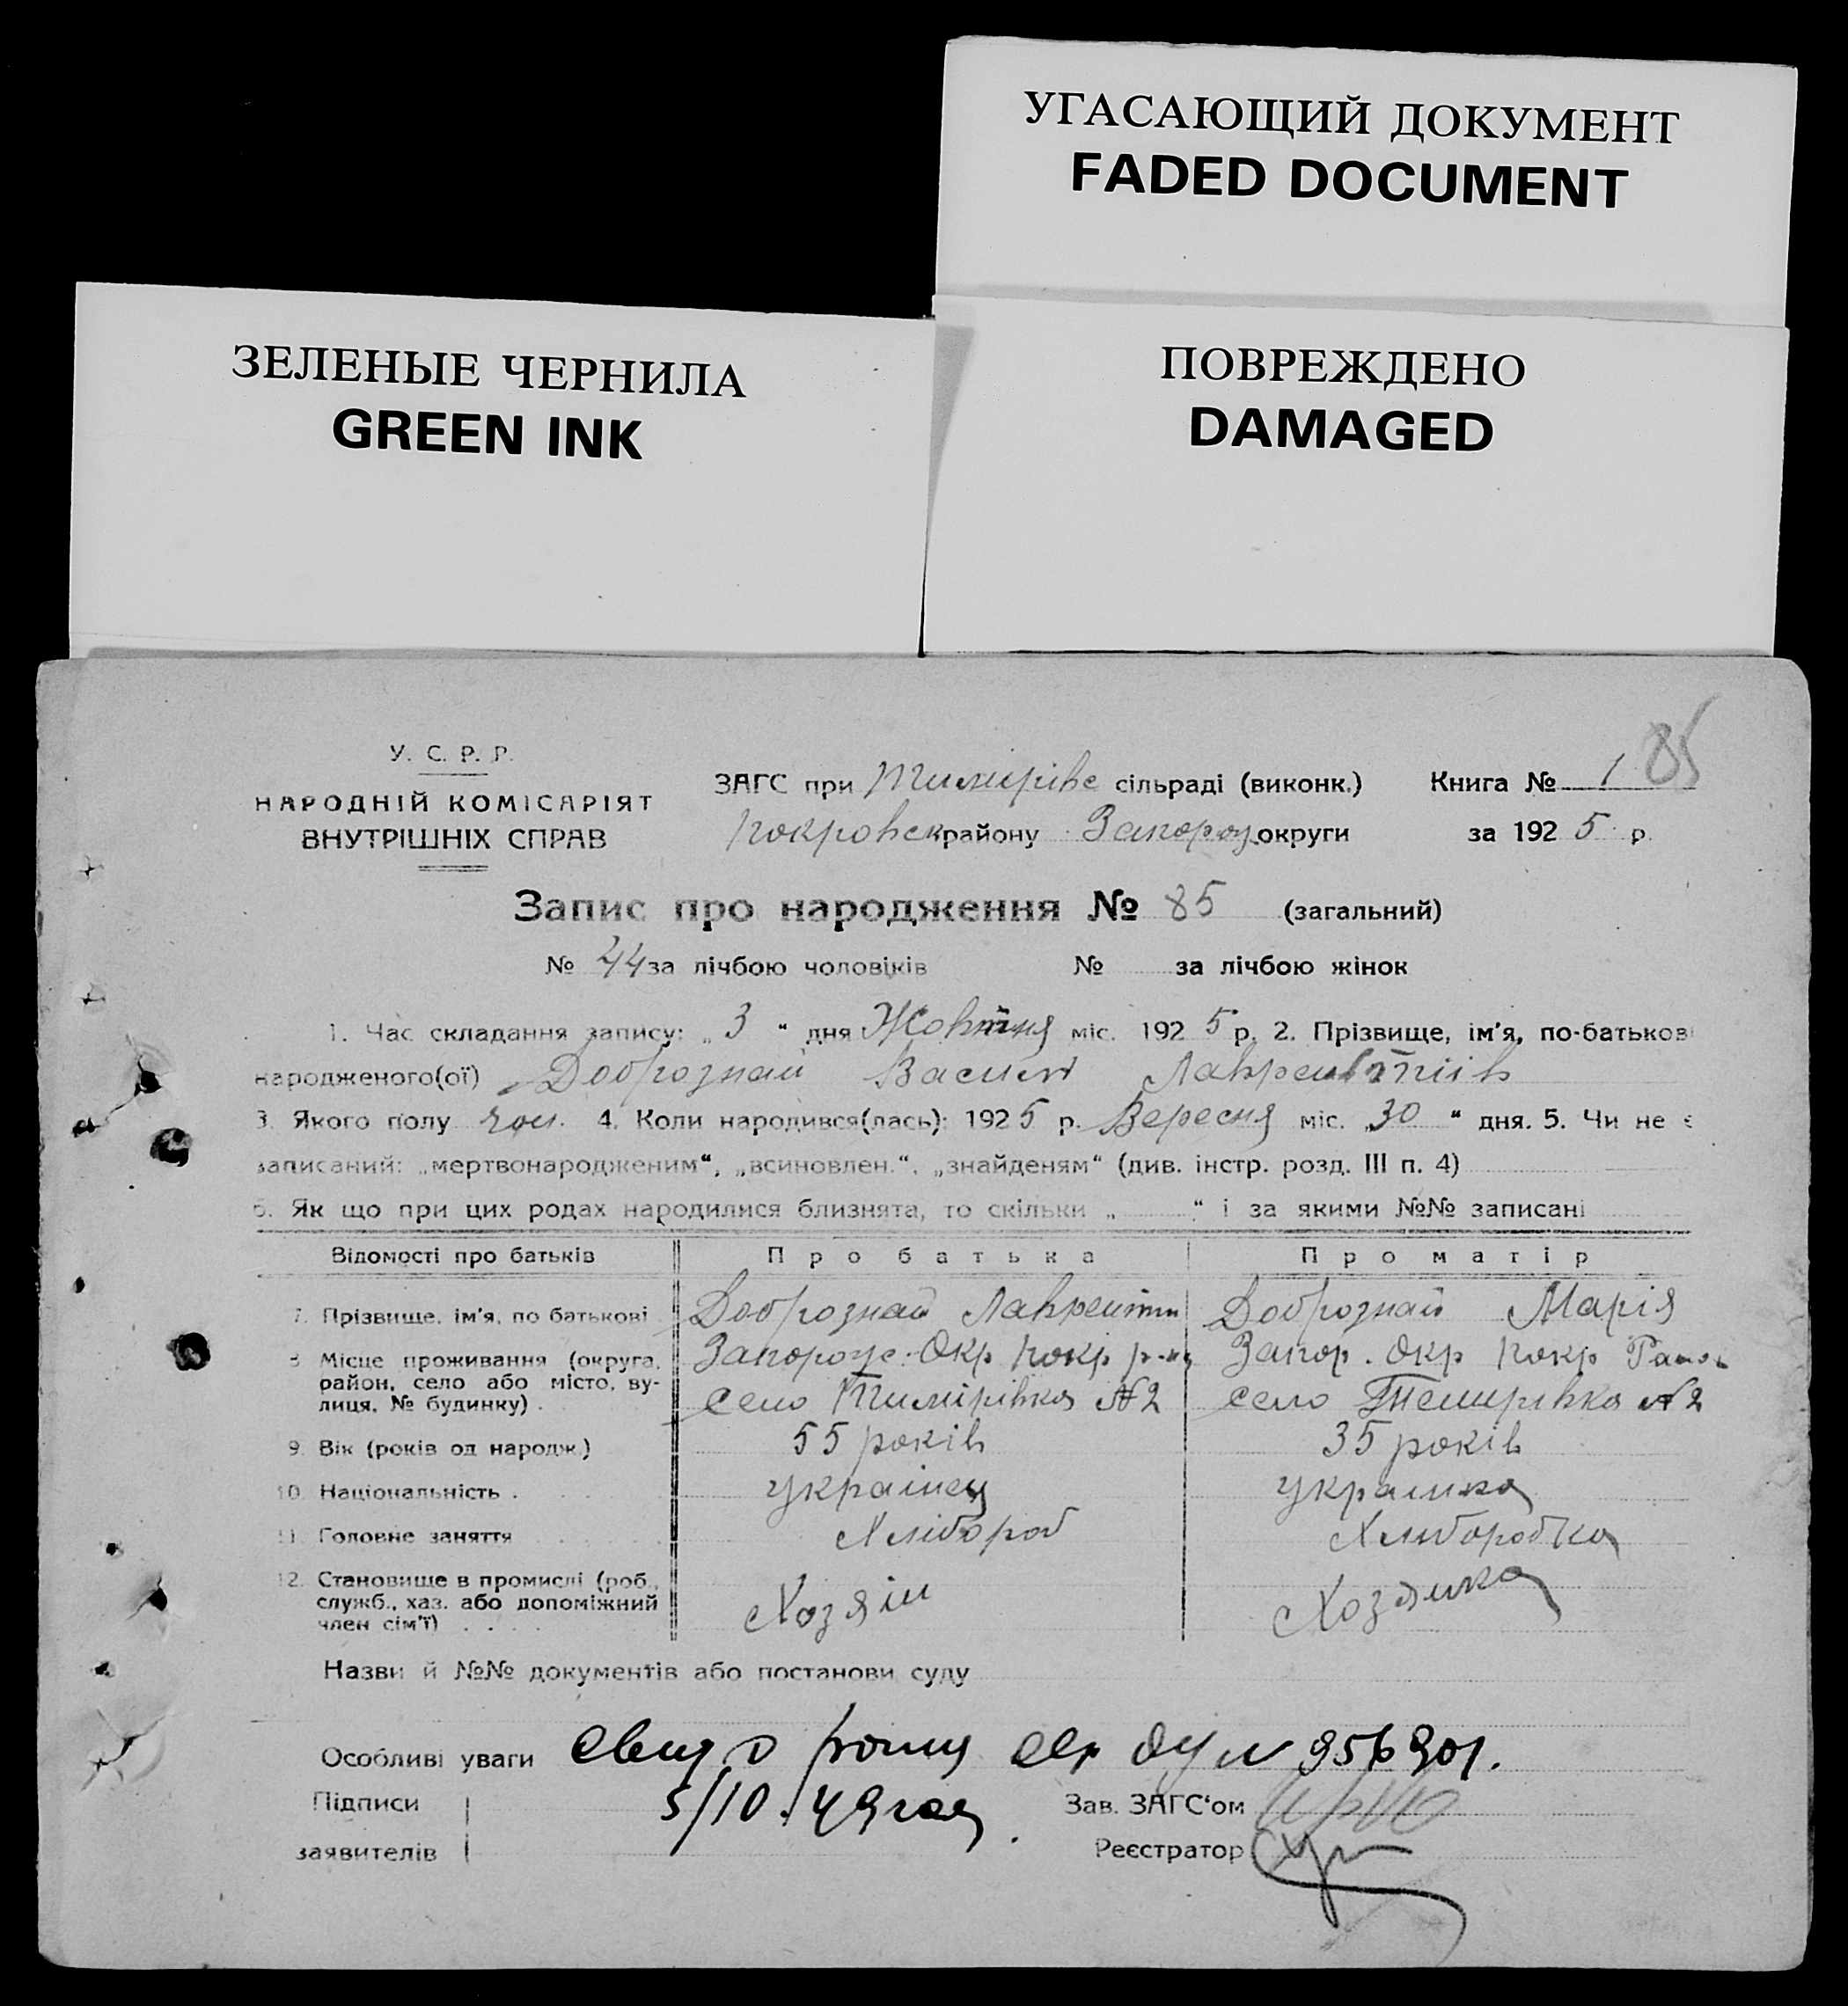 УГАСАЮЩИЙ ДОКУМЕНТ
FADED DOCUMENT
ЗЕЛЕНЫЕ ЧЕРНИЛА
GREEN INK
ПОВРЕЖДЕНО
DAMAGED
85
У. С. Р. Р.
НАРОДНІЙ КОМІСАРІЯТ
ВНУТРІШНІХ СПРАВ
ЗАГС при Тимирівс сільраді (виконк.) Книга № 1
Покровск району Запороз. округи за 1925 р.
Запис про народження № 85 (загальний)
№ 44 за лічбою чоловіків № за лічбою жінок
1. Час складання запису: „ 3 “ дня Жовтня міс. 1925 р. 2. Прізвище, ім'я, по-батькові
народженого(ої) Добрознай Василь Лаврентіів
3. Якого полу чол. 4. Коли народився(лась): 1925 р. Вересня міс. „30 “ дня. 5. Чи не є
записаний: „мертвонародженим“, „всиновлен.“, „знайденям“ (див. інстр. розд. III п. 4)
6. Як що при цих родах народилися близнята, то скільки „ “ і за якими №№ записані
Відомості про батьків Про батька Про матір
7. Прізвище, ім'я, по батькові Добрознай Лаврентий Добрознай Марія
8 Місце проживання (округа, Запорозс. Окр Покр р-на Запор. Окр Покр Район
район, село або місто, ву-
лиця, № будинку) . село Тимірівка №2 село Темирівка №2
9. Вік (років од народж.) 55 років 35 років
10. Національність . українец украинка
11. Головне заняття Хлибороб Хлиборобка
12. Становище в промислі (роб.,
служб., хаз. або допоміжний Хозяін Хозяика
член сім'ї) . . . .
Назви й №№ документів або постанови суду
Особливі уваги Свид о рожд N 956901.
Підписи 5/10. 49 год. Зав. ЗАГС'ом
заявителів Реєстратор